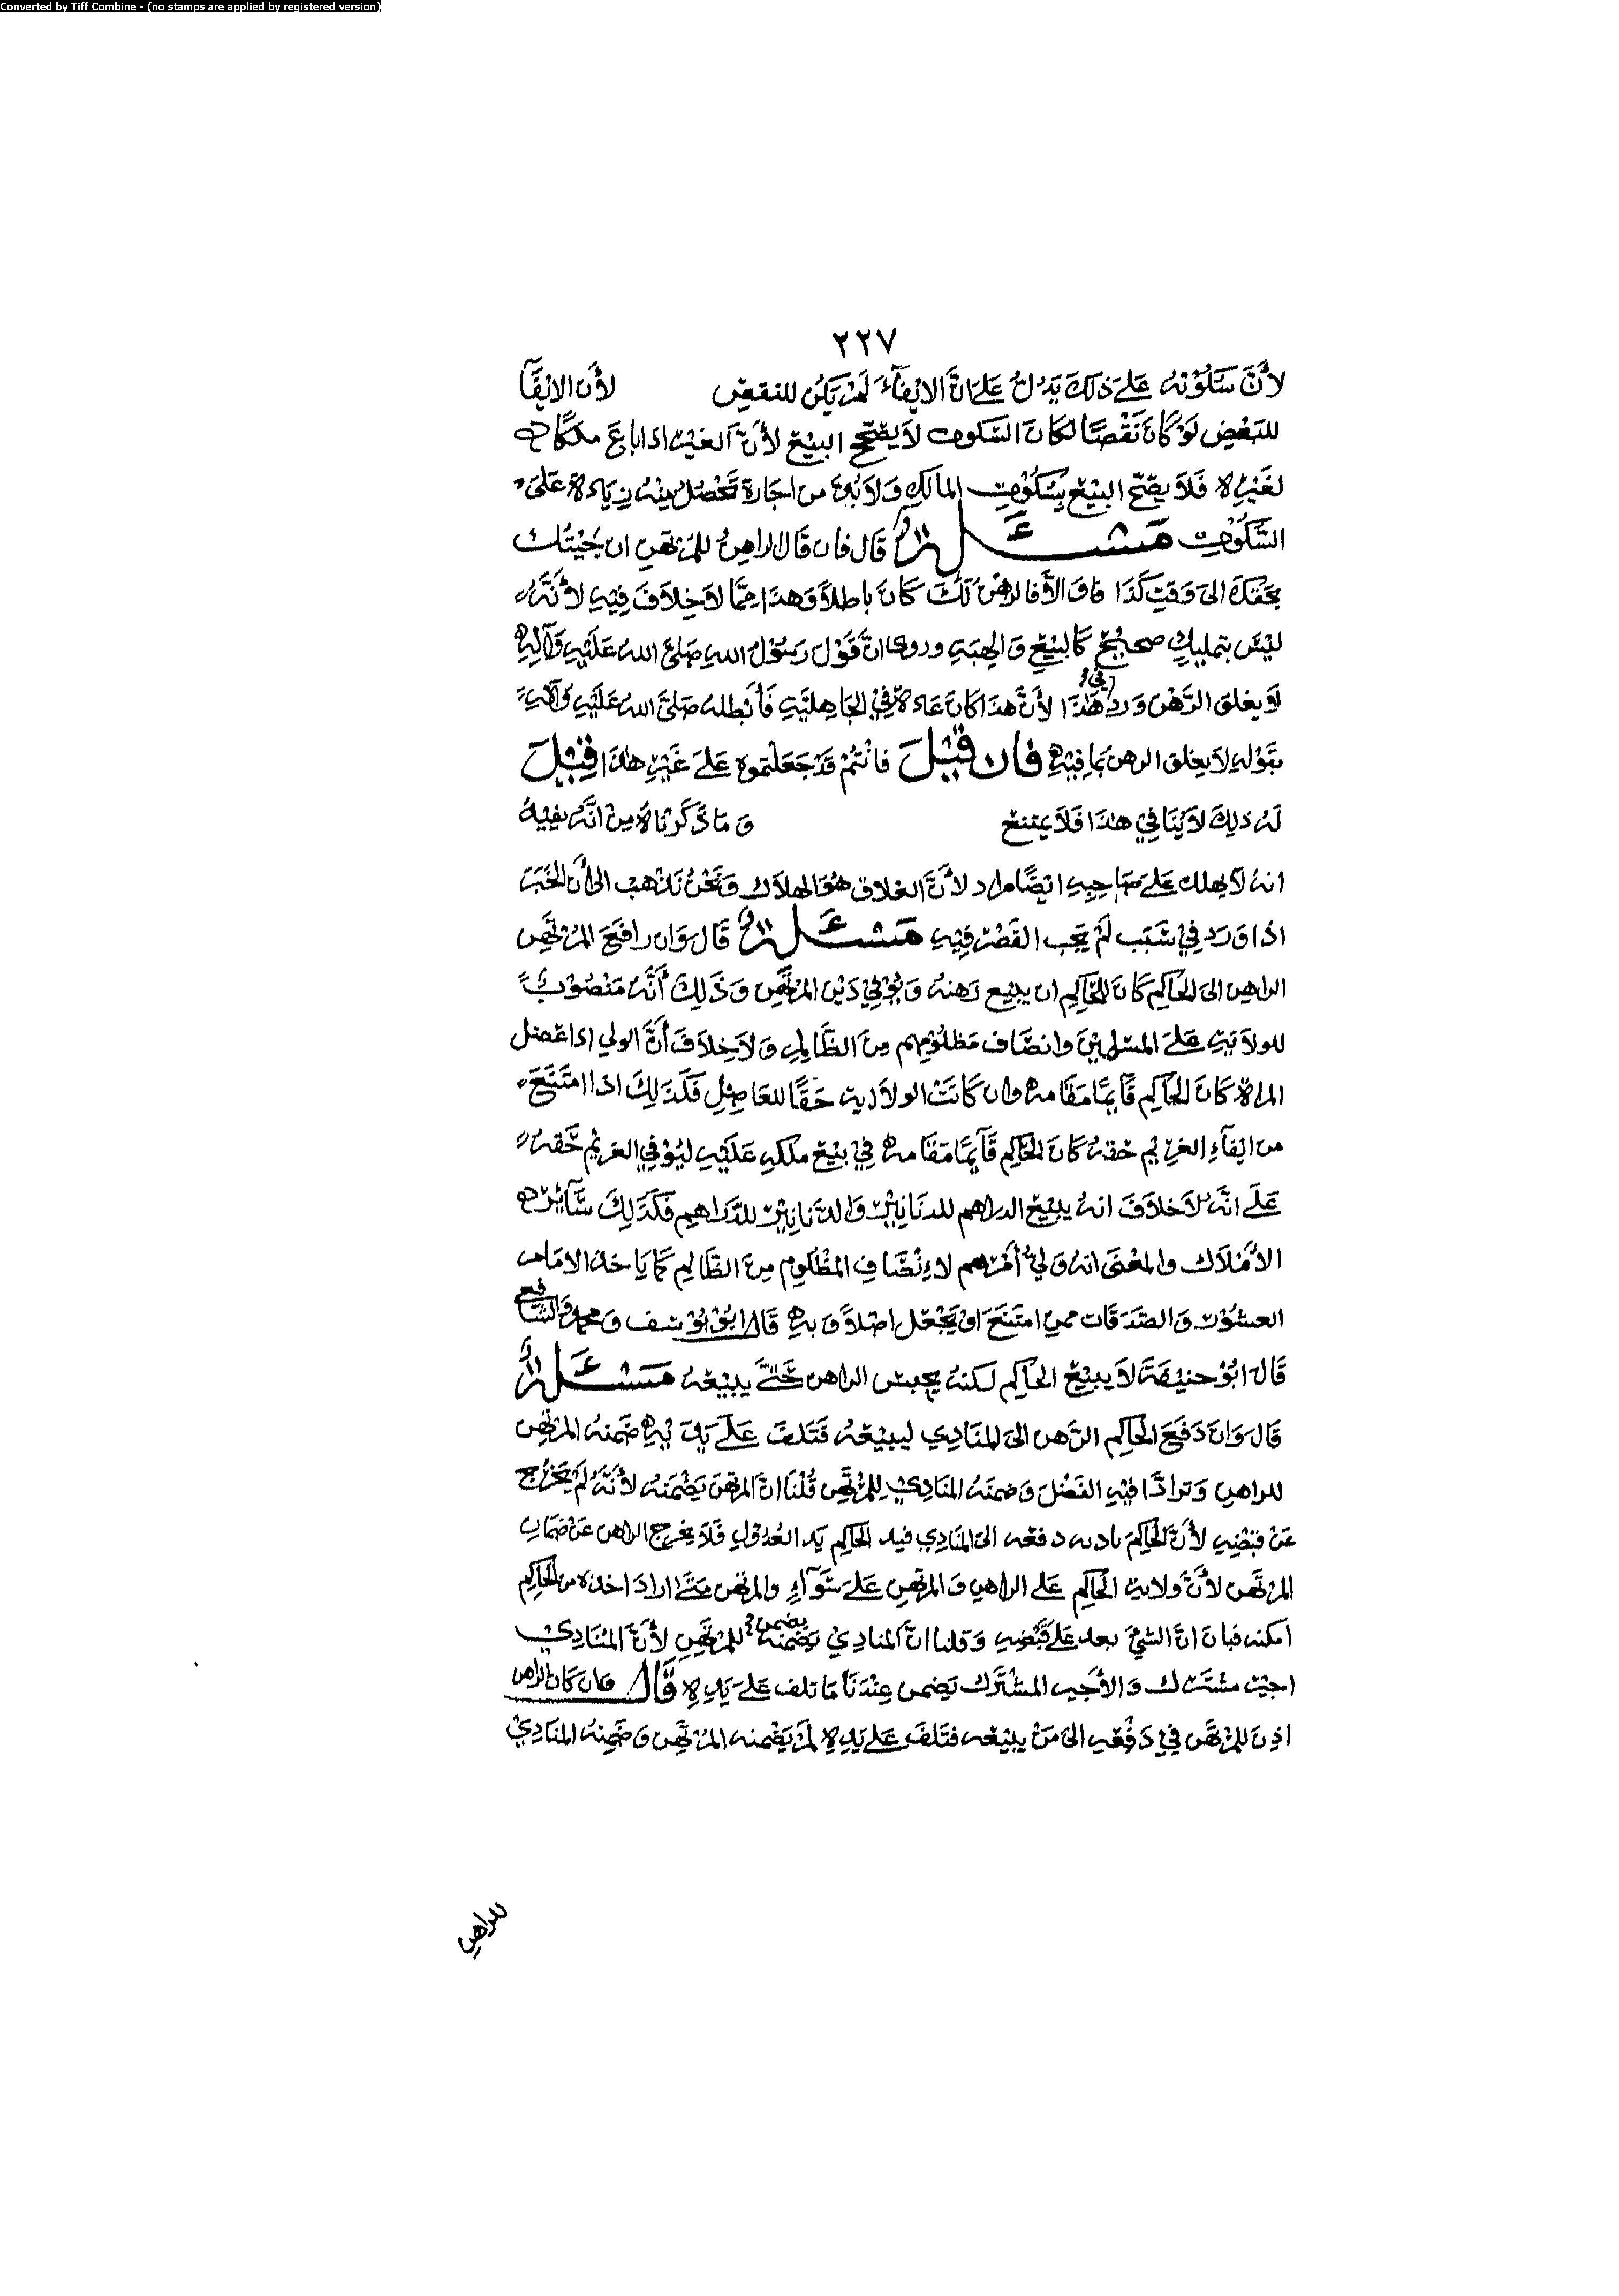 Converted by Tiff Combine - (no stamps are applied by registered version)
٢٢٧
لأن سكوته على ذلك يدل على ان الايفاء لم يكن للنقض لأن الايفا
للبعض لو كان نقصا لكان السكوت لا يصحح البيع لأن الغير اذا باع ملكا
لغيره فلا يصح البيع بسكوت المالك ولا بد من اجازة تحصل منه زيادة على
السكوت مسئلة قال فان قال الراهن للمرتهن ان جيتك
بحقك الى وقت كذا والا فالرهن لك كان باطلا وهذا مما لا خلاف فيه لأنه
ليس بتمليك صحيح كالبيع والهبة وروى ان قول رسول الله صلى الله عليه وآله
لا يغلق الرهن ورد في هذا لأن هذا كان عادة في الجاهلية فأبطله صلى الله عليه وآله
بقوله لا يغلق الرهن بما فيه فان قيل فانتم قد جعلتموه على غير هذا قيل
له ذلك لا ينافي هذا فلا يمتنع وما ذكرناه من انه يفيد
انه لا يهلك على صاحبه ايضا مراد لأن الغلاق هو الهلاك ونحن نذهب الى أن الخبر
اذا ورد في سبب لم يجب القصر فيه مسئلة قال وان رافع المرتهن
الراهن الى الحاكم كان للحاكم ان يبيع رهنه ويوفي دين المرتهن وذلك أنه منصوب
للولاية على المسلمين وانصاف مظلومهم من الظالم ولا خلاف أن الولي اذا عضل
المراة كان الحاكم قايما مقامه وان كانت الولاية حقا للعاضل فكذلك اذا امتنع
من ايفاء الغريم حقه كان الحاكم قايما مقامه في بيع ملكه عليه ليوفي الغريم حقه
على انه لا خلاف انه يبيع الدراهم للدنانير والدنانير للدراهم فكذلك سائر
الأملاك والمعنى انه ولي أمرهم لإنصاف المظلوم من الظالم كما ياخذ الامام
العشور والصدقات ممن امتنع او يجعل اصلا وبه قال ابو يوسف ومحمد والشافعي
قال ابو حنيفة لا يبيع الحاكم لكنه يحبس الراهن حتى يبيعه مسئلة
قال وان دفع الحاكم الرهن الى المنادي ليبيعه فتلف على يديه ضمنه المرتهن
للراهن وترادا فيه الفضل وضمنه المنادي للمرتهن قلنا ان المرتهن يضمنه لأنه لم يخرج
عن قبضه لأن الحاكم دفعه الى المنادي فيد الحاكم يد العدول فلا يخرج الراهن عن ضمان
المرتهن لأن ولاية الحاكم على الراهن والمرتهن على سواء والمرتهن متى اراد اخذه من الحاكم
امكنه فبان ان الشي بعد على قبضه وقلنا ان المنادي يضمنه يضمن للمرتهن لأن المنادي
اجير مشترك والأجير المشترك يضمن عندنا ما تلف على يده قال فان كان الراهن
اذن للمرتهن في دفعه الى من يبيعه فتلف على يده لم يضمنه المرتهن وضمنه المنادي
للراهن